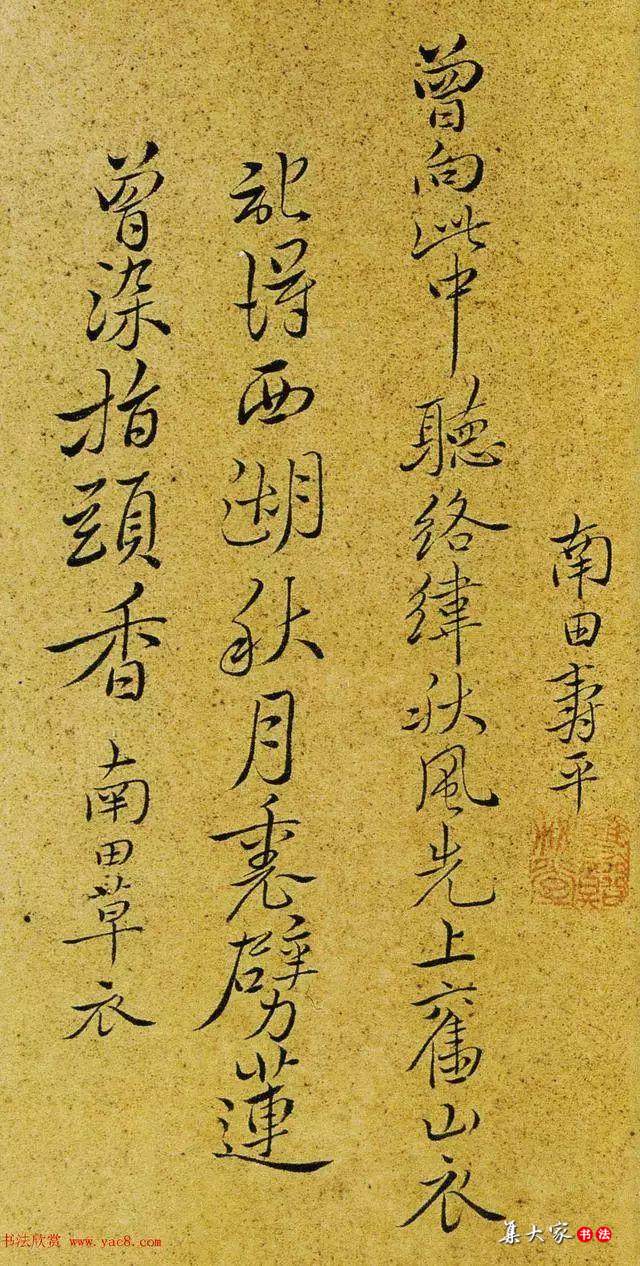 南田壽平
曾向此中聽絡緯秋風先上舊山衣
記得西湖秋月裏劈蓮
曾染指頭香 南田草衣
书法欣赏 www.yac8.com
集大家 书法